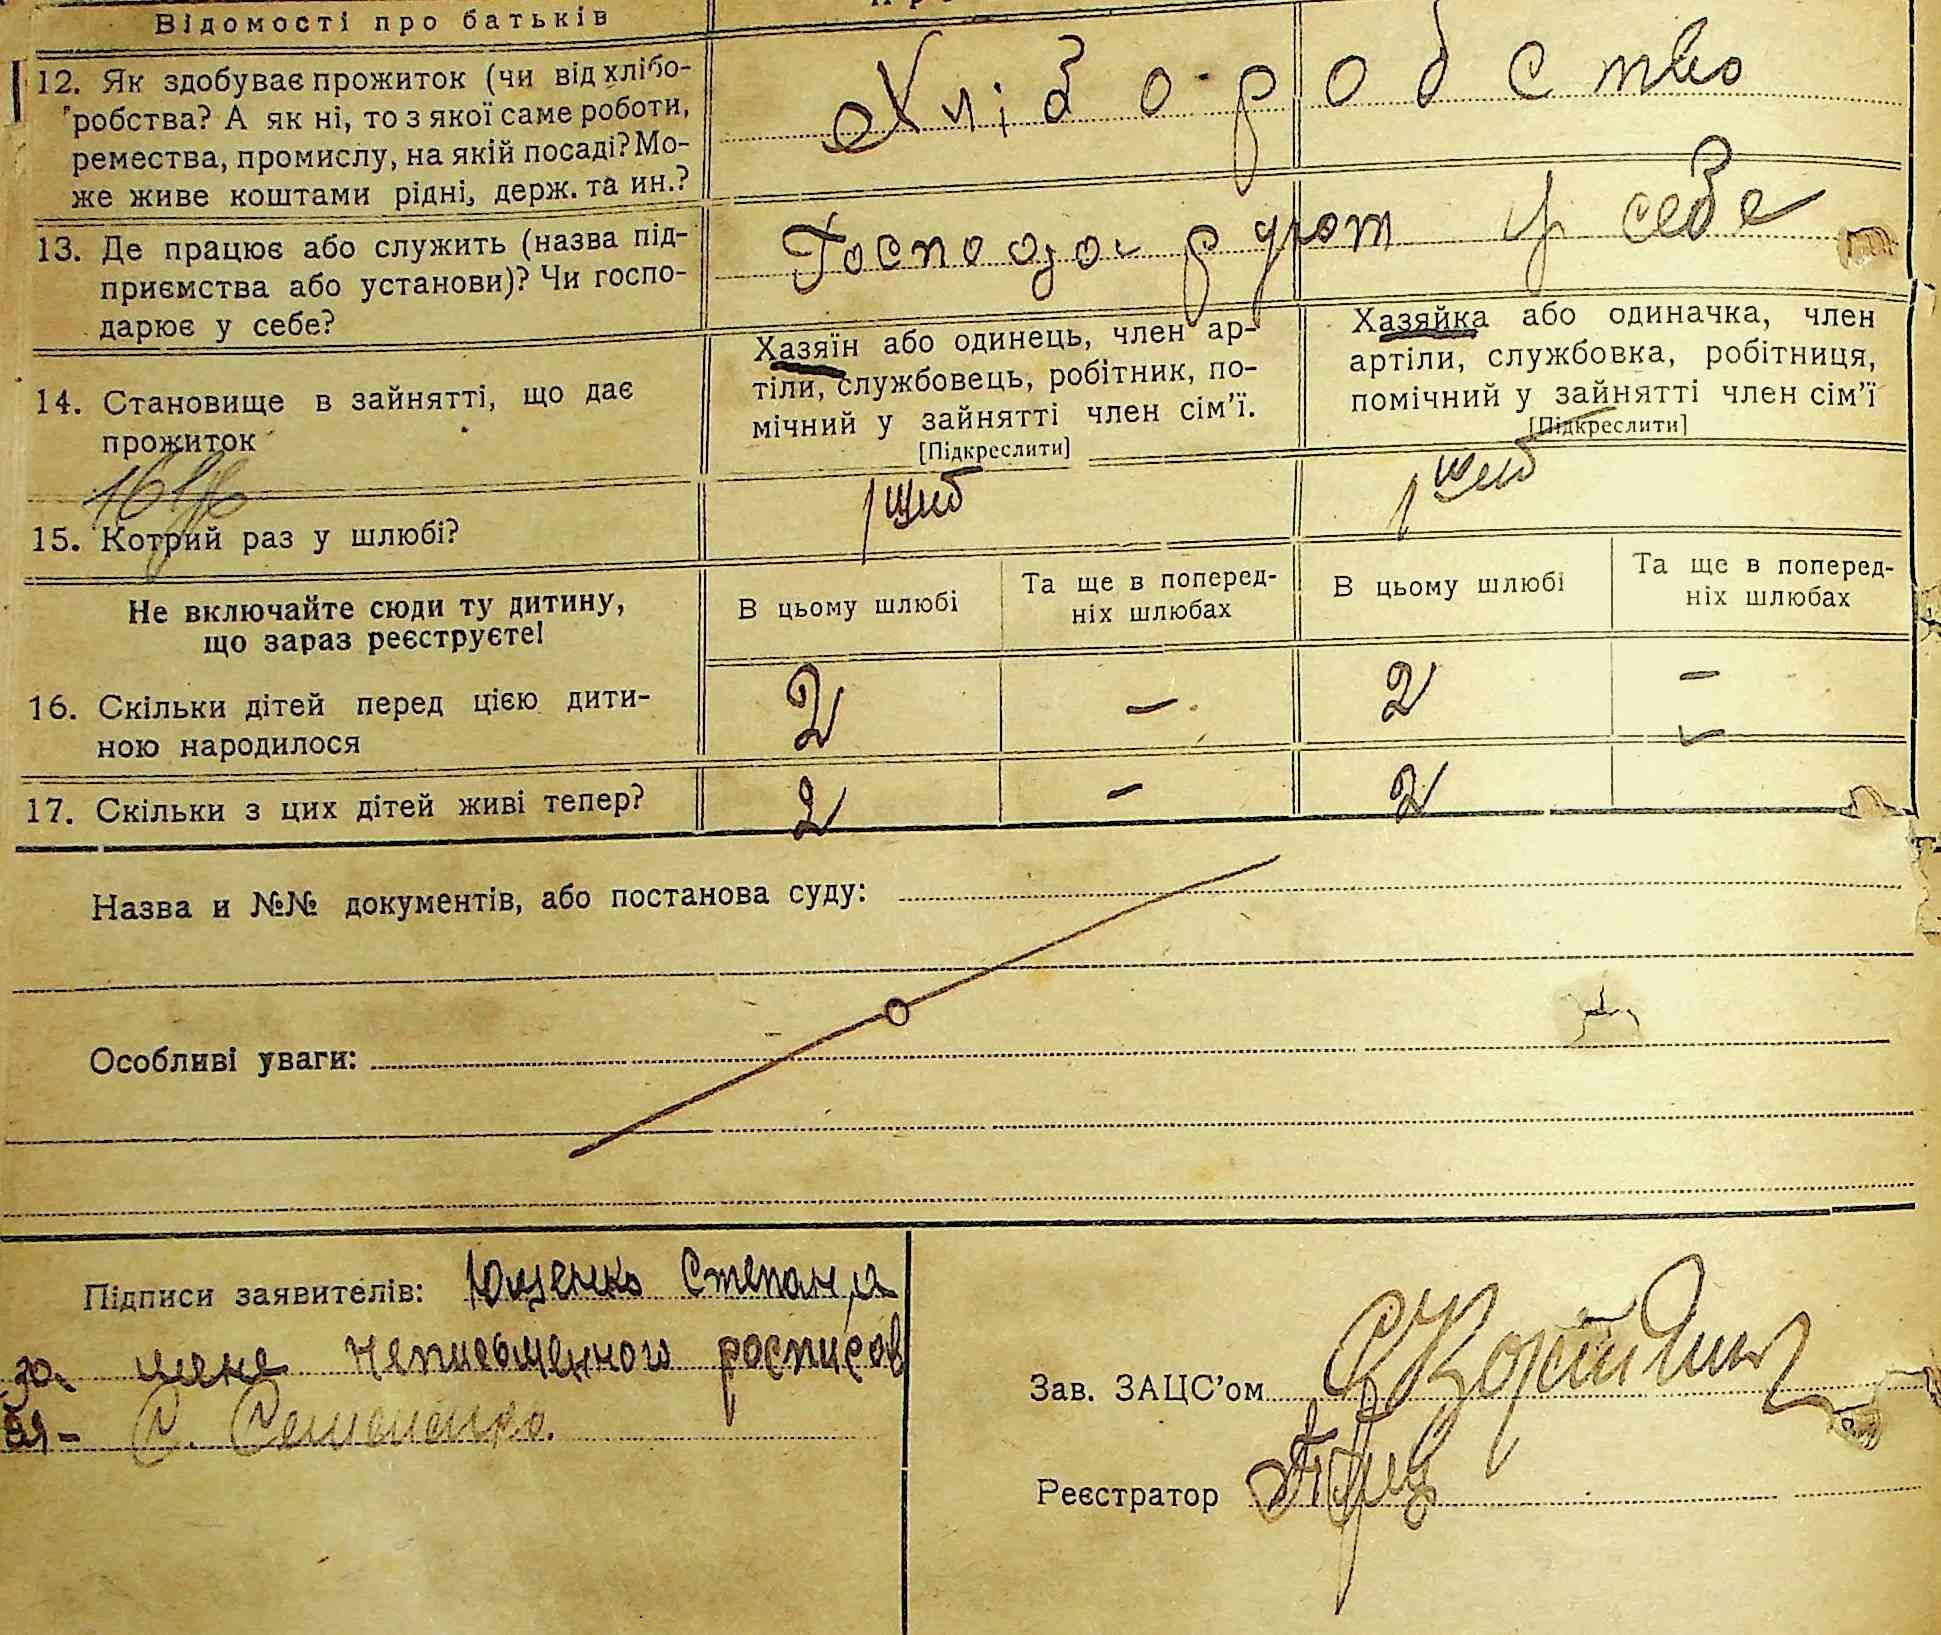 Відомості про батьків
12. Як здобуває прожиток (чи від хлібо-
робства? А як ні, то з якої саме роботи,
ремества, промислу, на якій посаді? Мо-
же живе коштами рідні, держ. та ин.?
Хлібо-робство
13. Де працює або служить (назва під-
приємства або установи)? Чи госпо-
дарює у себе?
Господаруют у себе
14. Становище в зайнятті, що дає
прожиток
Хазяїн або одинець, член ар-
тіли, службовець, робітник, по-
мічний у зайнятті член сім'ї.
[Підкреслити]
Хазяйка або одиначка, член
артіли, службовка, робітниця,
помічний у зайнятті член сім'ї
[Підкреслити]
15. Котрий раз у шлюбі?
1 1
Не включайте сюди ту дитину,
що зараз реєструєте!
В цьому шлюбі
Та ще в поперед-
ніх шлюбах
В цьому шлюбі
Та ще в поперед-
ніх шлюбах
16. Скільки дітей перед цією дити-
ною народилося
2 - 2 -
17. Скільки з цих дітей живі тепер?
2 - 2
Назва и №№ документів, або постанова суду:
Особливі уваги:
Підписи заявителів: Ющенко Степан а
за цене неписьменного росписов
С. Семененко.
Зав. ЗАЦС'ом
Реєстратор